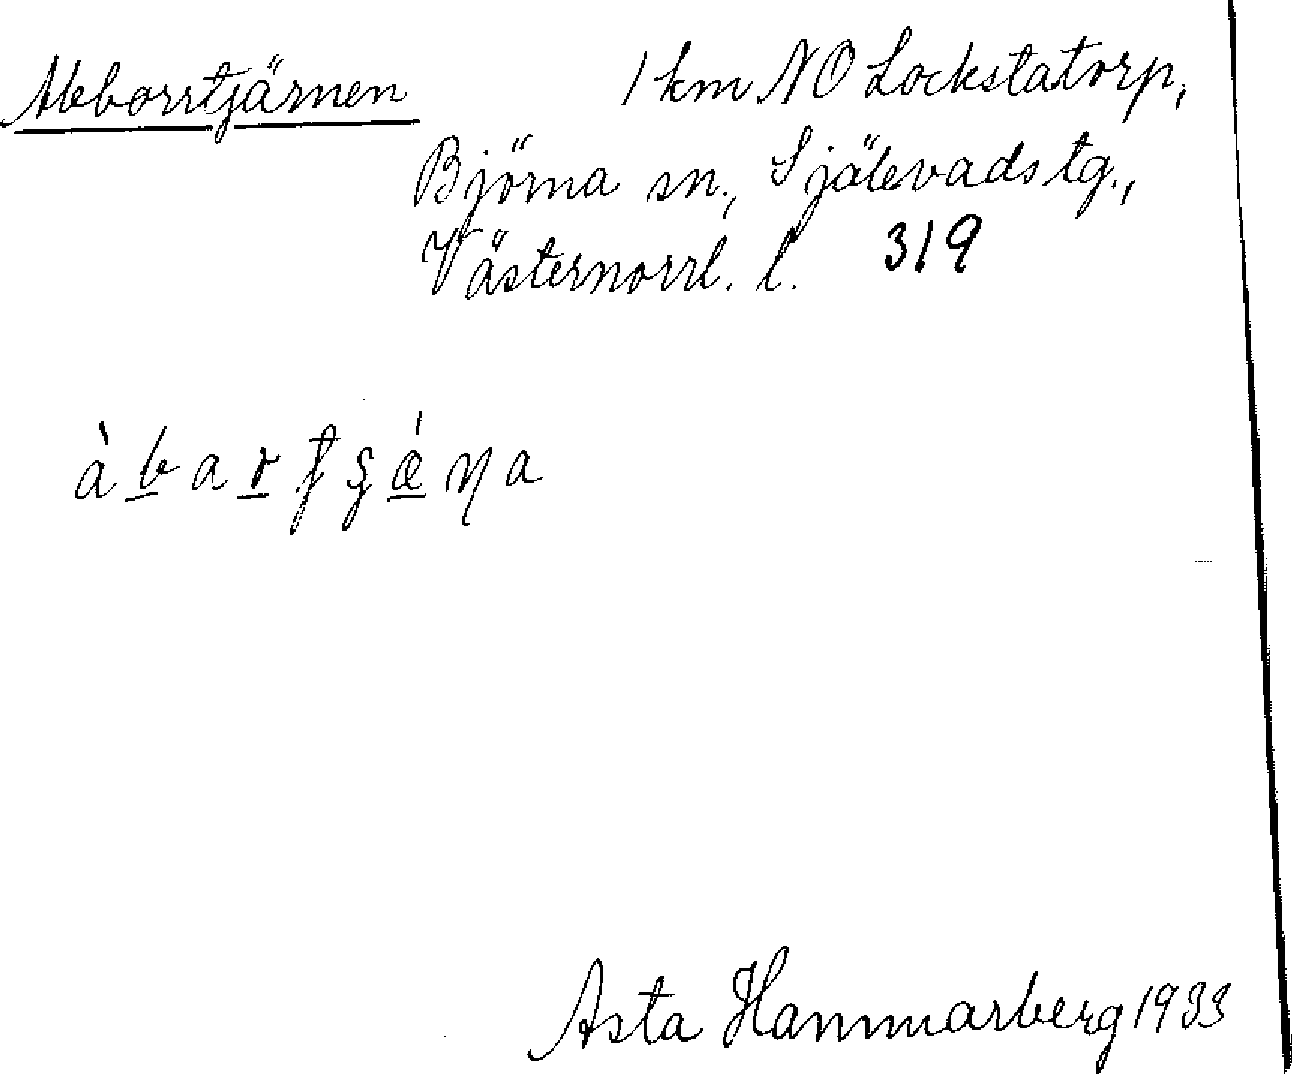 Abborrtjärnen 1 km NO Lockstatorp,
Björna sn., Själevads tg.,
Västernorrl. l. 319
Asta Hammarberg 1933